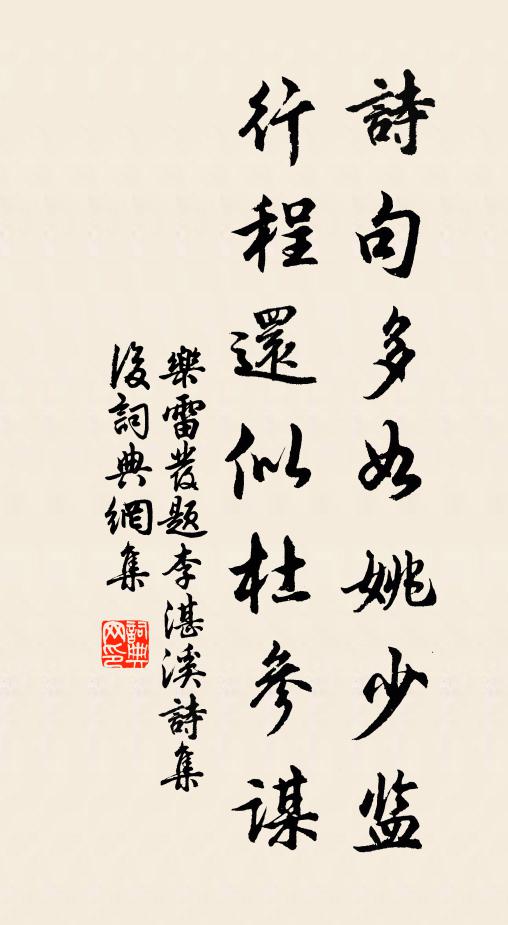 詩句多如姚少监
行程還似杜參謀
樂雷發題李湛溪詩集
後詞典網集
詞典
网印